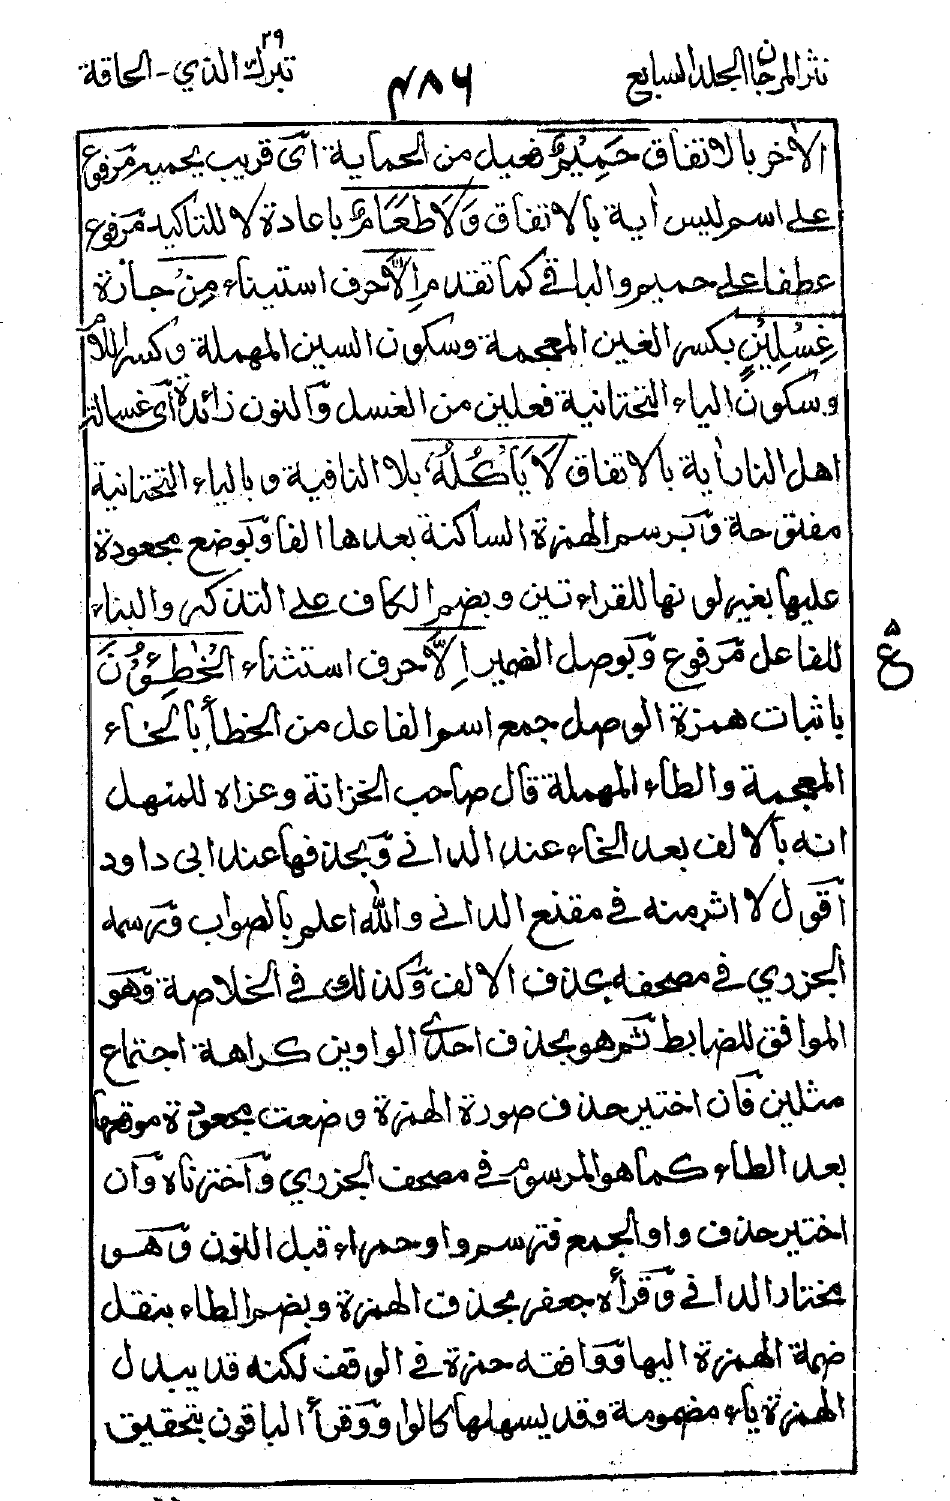 نثر المرجان الجلد السابع
٤٨٦
تبرك الذي ٢٩ - الحاقة
الأخر بالاتفاق حَمِيْمٌ فعيل من الحماية اى قريب يحميه مرفوع
على اسم ليس أية بالاتفاق وَلَا طَعَامٌ باعادة لا للتاكيد مرفوع
عطفا على حميم والباقى كما تقدم اِلَّا حرف استثناء مِنْ جارة
غِسْلِيْنٍ بكسر الغين المعجمة وسكون السين المهملة وكسر اللام
وسكون الياء التحتانية فعلين من الغسل والنون زائدة اى غسالة
اهل النار أية بالاتفاق لَا يَأْكُلُهٗ بلا النافية وبالياء التحتانية
مفتوحة وبرسم الهمزة الساكنة بعدها الفا وبوضع مجعودة
عليها بغير لونها للقراءتين وبضم الكاف على التذكير والبناء
للفاعل مرفوع وبوصل الضمير اِلَّا حرف استثناء الْخٰطِـُٔوْنَ
باثبات همزة الوصل جمع اسم الفاعل من الخطأ بالخاء
المعجمة والطاء المهملة قال صاحب الخزانة وعزاه للمنهل
انه بالالف بعد الخاء عند الدانى وبحذفها عند ابى داود
اقول لا اثر منه فى مقنع الدانى والله اعلم بالصواب ورسمه
الجزري فى مصحفه بحذف الالف وكذلك فى الخلاصة وهو
الموافق للضابط ثم هو بحذف احدى الواوين كراهة اجتماع
مثلين فان اختير حذف صورة الهمزة وضعت مجعودة موقعها
بعد الطاء كما هو المرسوم فى مصحف الجزري واخترناه وان
اختير حذف واو الجمع فترسم واو حمراء قبل النون وهو
مختار الدانى وقرأه جعفر بحذف الهمزة وبضم الطاء بنقل
ضمة الهمزة اليها ووافقه حمزة فى الوقف لكنه قد يبدل
الهمزة ياء مضمومة وقد يسهلها كالواو وقرأ الباقون بتحقيق
ع
٥